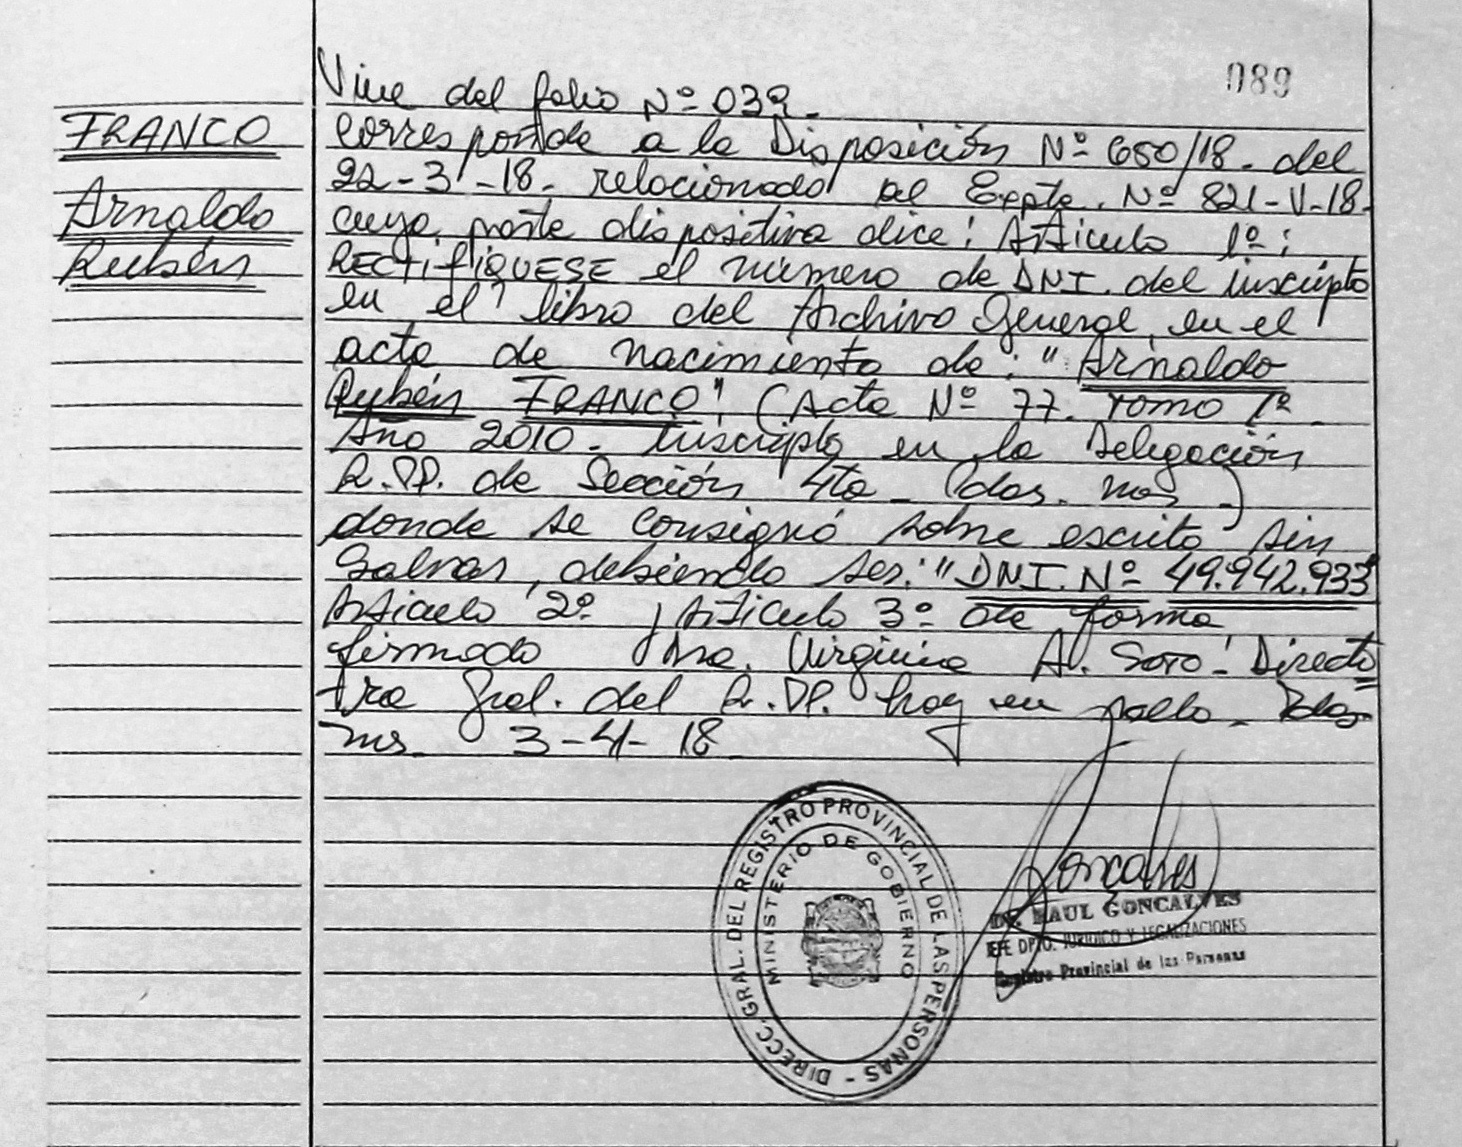 089
Viene del folio Nº 039.
FRANCO
Arnaldo
Rubén
Corresponde a la Disposición Nº 650/18. del
22-3-18. relacionado al Expte. Nº 821-V-18.
cuya parte dispositiva dice: Artículo 1º:
RECTIFIQUESE el número de DNI. del inscripto
en el libro del Archivo General, en el
acta de nacimiento de: "Arnaldo
Rubén FRANCO" (Acta Nº 77. Tomo 1º
Año 2010. Inscripto en la Delegación
R.PP. de Sección 4ta - (Pdas. Mnes.)
donde se consignó sobre escrito sin
Salvar, debiendo ser: "DNI. Nº 49.942.933"
Artículo 2º y Artículo 3º de forma
firmado Dra. Virginia A. Soto - Directo
tra Gral. del R.PP. hoy en pollo - Pdas
Ms. 3-4-18
DIRECC. GRAL. DEL REGISTRO PROVINCIAL DE LAS PERSONAS -
MINISTERIO DE GOBIERNO
Goncalves
Dr. RAUL GONCALVES
JEFE DPTO. JURIDICO Y LEGALIZACIONES
Registro Provincial de las Personas